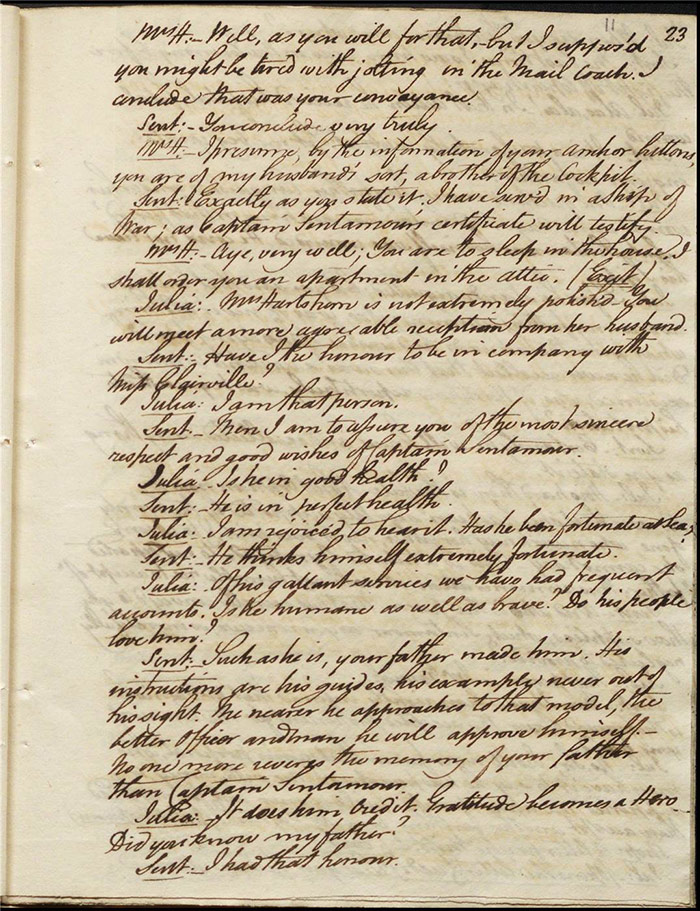 11
23
Mrs H.- Well, as you will for that,- but I suppos'd
you might be tired with jolting in the Mail Coach. I
conclude that was your conveyance.
Sent:- You conclude very truly.
Mrs H.- I presume, by the information of your anchor buttons,
you are of my husband's sort, a brother of the Cockpit.
Sent: Exactly as you state it. I have serv'd in a Ship of
War; as Captain Sentamour's certificate will testify.
Mrs H.- Aye, very well; You are to sleep in the house. I
shall order you an apartment in the attic. (Exit)
Julia:. Mrs Hartshorn is not extremely polish'd - You
will meet a more agreeable reception from her husband.
Sent:- Have I the honour to be in company with
Miss Clairville?
Julia: I am that person.
Sent.- Then I am to assure you of the most sincere
respect and good wishes of Captain Sentamour.
Julia. Is he in good health?
Sent:- He is in perfect health.
Julia:- I am rejoiced to hear it. Has he been fortunate at Sea?
Sent:- He thinks himself extremely fortunate.
Julia:- Of his gallant services we have had frequent
accounts. Is he humane as well as brave? Do his people
love him?
Sent:- Such as he is, your father made him. His
instructions are his guides, his example never out of
his sight. The nearer he approaches to that model, the
better Officer and man he will approve himself.-
No one more reveres the memory of your father
than Captain Sentamour.
Julia:- It does him credit. Gratitude becomes a Hero.
Did you know my father?
Sent:- I had that honour.